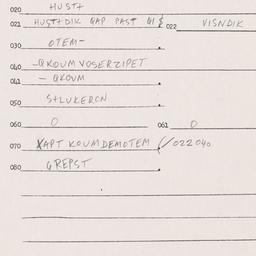 020 HUST+
021 HUST+DIK GAP PAST 61 022 VISNDIK
030 OTEM-
040 -GKOUMVOSERZIPET
041 - GKOUM
050 S+LUKERON
060 0 061 0
070 XAPT KOUMDEMOTEM (/022040
080 GREPST